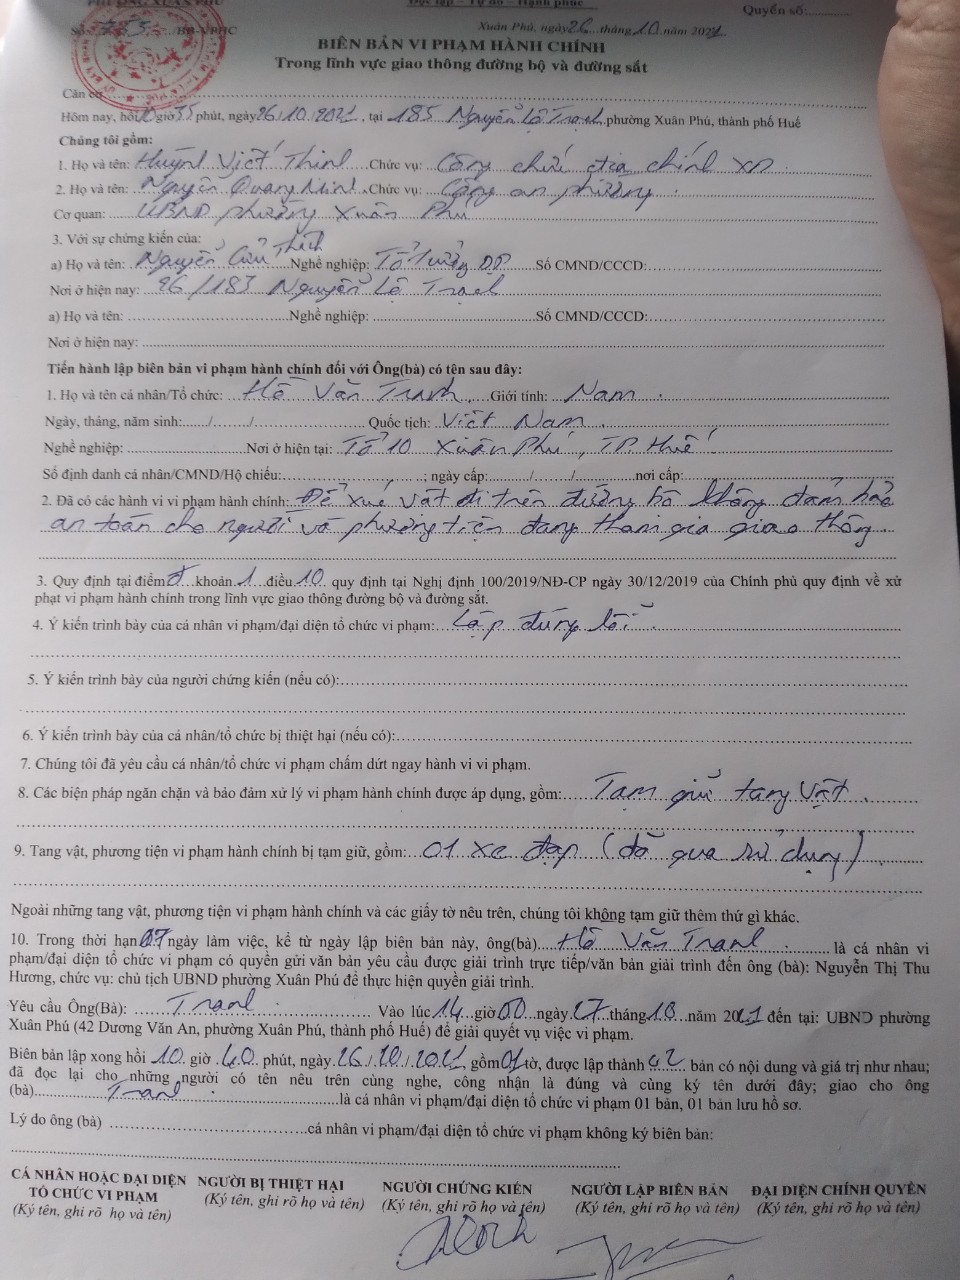 PHƯỜNG XUÂN PHÚ
Độc lập – Tự do – Hạnh phúc
Quyển số:............
Số: /BB-VPHC
Xuân Phú, ngày 26 tháng 10 năm 2021
BIÊN BẢN VI PHẠM HÀNH CHÍNH
Trong lĩnh vực giao thông đường bộ và đường sắt
Căn cứ
Hôm nay, hồi 10 giờ 35 phút, ngày 26/10/2021, tại 185 Nguyễn Lộ Trạch, phường Xuân Phú, thành phố Huế
Chúng tôi gồm:
1. Họ và tên: Huỳnh Viết Thinh Chức vụ: Công chức địa chính XD
2. Họ và tên: Nguyễn Quang Minh Chức vụ: Công an phường
Cơ quan: UBND phường Xuân Phú
3. Với sự chứng kiến của:
a) Họ và tên: Nguyễn Cửu Thích Nghề nghiệp: Tổ trưởng DP Số CMND/CCCD:
Nơi ở hiện nay: 26/183 Nguyễn Lộ Trạch
a) Họ và tên: Nghề nghiệp: Số CMND/CCCD:
Nơi ở hiện nay:
Tiến hành lập biên bản vi phạm hành chính đối với Ông(bà) có tên sau đây:
1. Họ và tên cá nhân/Tổ chức: Hồ Văn Tranh Giới tính: Nam
Ngày, tháng, năm sinh:....../....../...... Quốc tịch: Việt Nam
Nghề nghiệp: Nơi ở hiện tại: Tổ 10 Xuân Phú, TP Huế
Số định danh cá nhân/CMND/Hộ chiếu: ; ngày cấp:....../....../......nơi cấp:
2. Đã có các hành vi vi phạm hành chính: Để xúc vật đi trên đường bộ không đảm bảo
an toàn cho người và phương tiện đang tham gia giao thông
3. Quy định tại điểm đ khoản 1 điều 10 quy định tại Nghị định 100/2019/NĐ-CP ngày 30/12/2019 của Chính phủ quy định về xử
phạt vi phạm hành chính trong lĩnh vực giao thông đường bộ và đường sắt.
4. Ý kiến trình bày của cá nhân vi phạm/đại diện tổ chức vi phạm: Lập đúng lỗi
5. Ý kiến trình bày của người chứng kiến (nếu có):
6. Ý kiến trình bày của cá nhân/tổ chức bị thiệt hại (nếu có):
7. Chúng tôi đã yêu cầu cá nhân/tổ chức vi phạm chấm dứt ngay hành vi vi phạm.
8. Các biện pháp ngăn chặn và bảo đảm xử lý vi phạm hành chính được áp dụng, gồm: Tạm giữ tang vật
9. Tang vật, phương tiện vi phạm hành chính bị tạm giữ, gồm: 01 xe đạp (đã qua sử dụng)
Ngoài những tang vật, phương tiện vi phạm hành chính và các giấy tờ nêu trên, chúng tôi không tạm giữ thêm thứ gì khác.
10. Trong thời hạn 07 ngày làm việc, kể từ ngày lập biên bản này, ông(bà) Hồ Văn Tranh là cá nhân vi
phạm/đại diện tổ chức vi phạm có quyền gửi văn bản yêu cầu được giải trình trực tiếp/văn bản giải trình đến ông (bà): Nguyễn Thị Thu
Hương, chức vụ: chủ tịch UBND phường Xuân Phú để thực hiện quyền giải trình.
Yêu cầu Ông(Bà): Tranh Vào lúc 14 giờ 00 ngày 27 tháng 10 năm 2021 đến tại: UBND phường
Xuân Phú (42 Dương Văn An, phường Xuân Phú, thành phố Huế) để giải quyết vụ việc vi phạm.
Biên bản lập xong hồi 10 giờ 40 phút, ngày 26/10/2021, gồm 01 tờ, được lập thành 02 bản có nội dung và giá trị như nhau;
đã đọc lại cho những người có tên nêu trên cùng nghe, công nhận là đúng và cùng ký tên dưới đây; giao cho ông
(bà) Tranh là cá nhân vi phạm/đại diện tổ chức vi phạm 01 bản, 01 bản lưu hồ sơ.
Lý do ông (bà) cá nhân vi phạm/đại diện tổ chức vi phạm không ký biên bản:
CÁ NHÂN HOẶC ĐẠI DIỆN NGƯỜI BỊ THIỆT HẠI NGƯỜI CHỨNG KIẾN NGƯỜI LẬP BIÊN BẢN ĐẠI DIỆN CHÍNH QUYỀN
TỔ CHỨC VI PHẠM (Ký tên, ghi rõ họ và tên) (Ký tên, ghi rõ họ và tên) (Ký tên, ghi rõ họ và tên) (Ký tên, ghi rõ họ và tên)
(Ký tên, ghi rõ họ và tên)